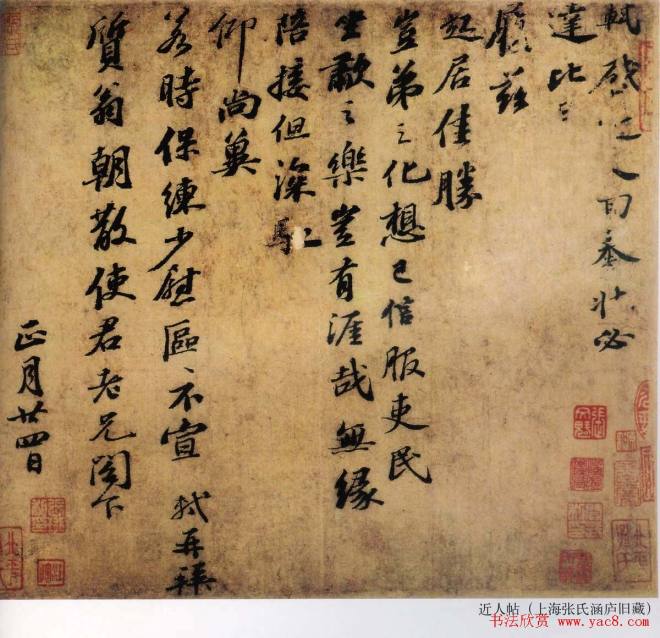 軾啟近人回奉狀必
達比日
履茲
起居佳勝
豈弟之化想已信服吏民
坐歗之樂豈有涯哉無緣
陪接但深馳
仰尚冀
若時保練少慰區〻不宣 軾再拜
質翁朝散使君老兄閣下
正月廿四日
近人帖（上海张氏涵庐旧藏）
书法欣赏 www.yac8.com